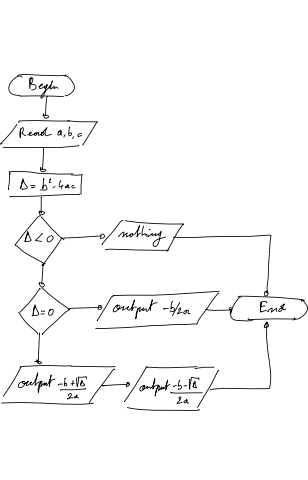 Begin
Read a,b,c
Δ = b²-4ac
Δ < 0
nothing
Δ=0
output -b/2a
End
output -b+√Δ/2a
output -b-√Δ/2a